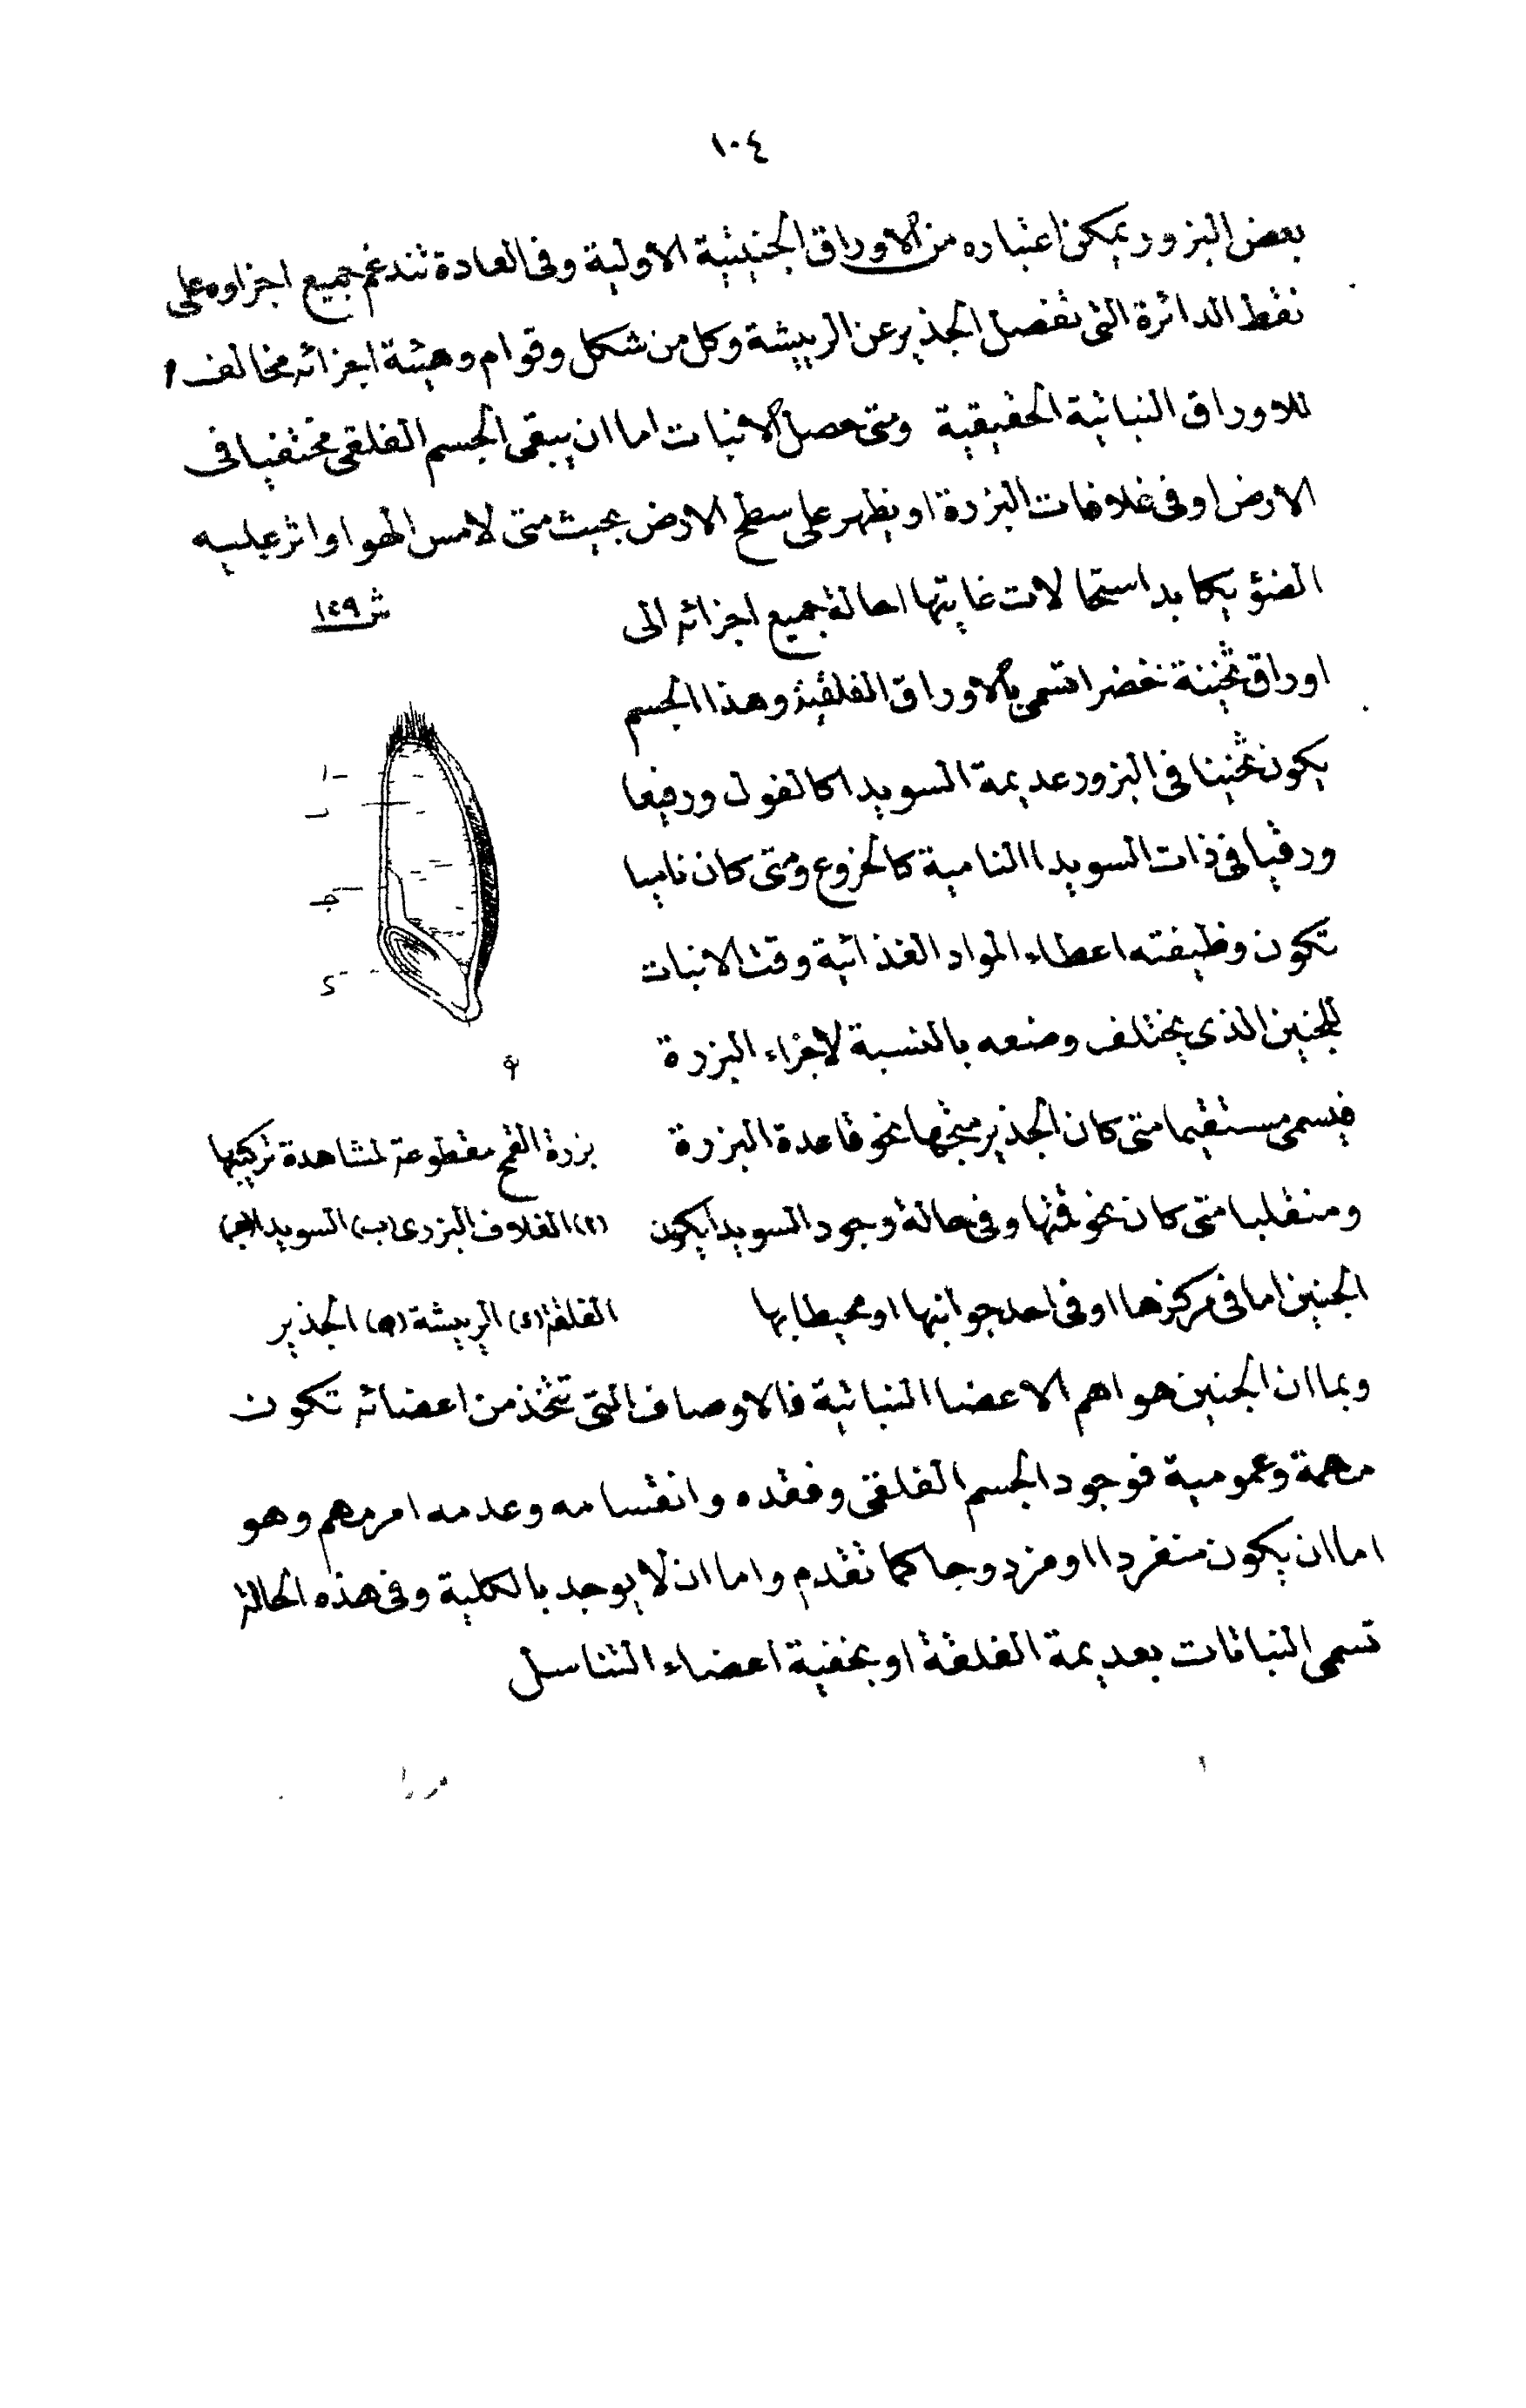 ١٠٤
بعض البزور يمكن اعتباره من الاوراق الجنينية الاولية وفى العادة تندغم جميع اجزاوه على
نقط الدائرة التى تفصل الجذير عن الريشة وكل من شكل وقوام وهيئة اجزائه مخالف
للاوراق النباتية الحقيقية ومتى حصل الانبات اما ان يبقى الجسم الفلقى مختفيا فى
الارض او فى غلافات البزرة او يظهر على سطح الارض بحيث متى لامس الهوا واثر عليه
الضؤ يكابد استحالات غايتها احالة جميع اجزائه الى
اوراق ثخينة خضرا تسمى بالاوراق الفلقية وهذا الجسم
يكون ثخينا فى البزور عديمة السويدا كالفول ورفيعا
ورقيا فى ذات السويدا النامية كالخروع ومتى كان ناميا
تكون وظيفته اعطاء المواد الغذائية وقت الانبات
للجنين الذى يختلف وضعه بالنسبة لاجزاء البزرة
فيسمى مستقيما متى كان الجذير متجها نحو قاعدة البزرة
ومنقلبا متى كان نحو قمتها وفى حالة وجود السويدا يكون
الجنين اما فى مركزها او فى احد جوانبها او محيطا بها
ش ١٤٩
ا
ب
ج
د
ه
بزرة القمح مقطوعة لمشاهدة تركيبها
(ا) الغلاف البزرى (ب) السويدا (ج)
الفلقة (د) الريشة (ه) الجذير
وبما ان الجنين هو اهم الاعضا النباتية فالاوصاف التى تتخذ من اعضائه تكون
مهمة وعمومية فوجود الجسم الفلقى وفقده وانقسامه وعدمه امر مهم وهو
اما ان يكون منفردا او مزدوجا كما تقدم واما ان لا يوجد بالكلية وفى هذه الحالة
تسمى النباتات بعديمة الفلقة او بخفية اعضاء التناسل